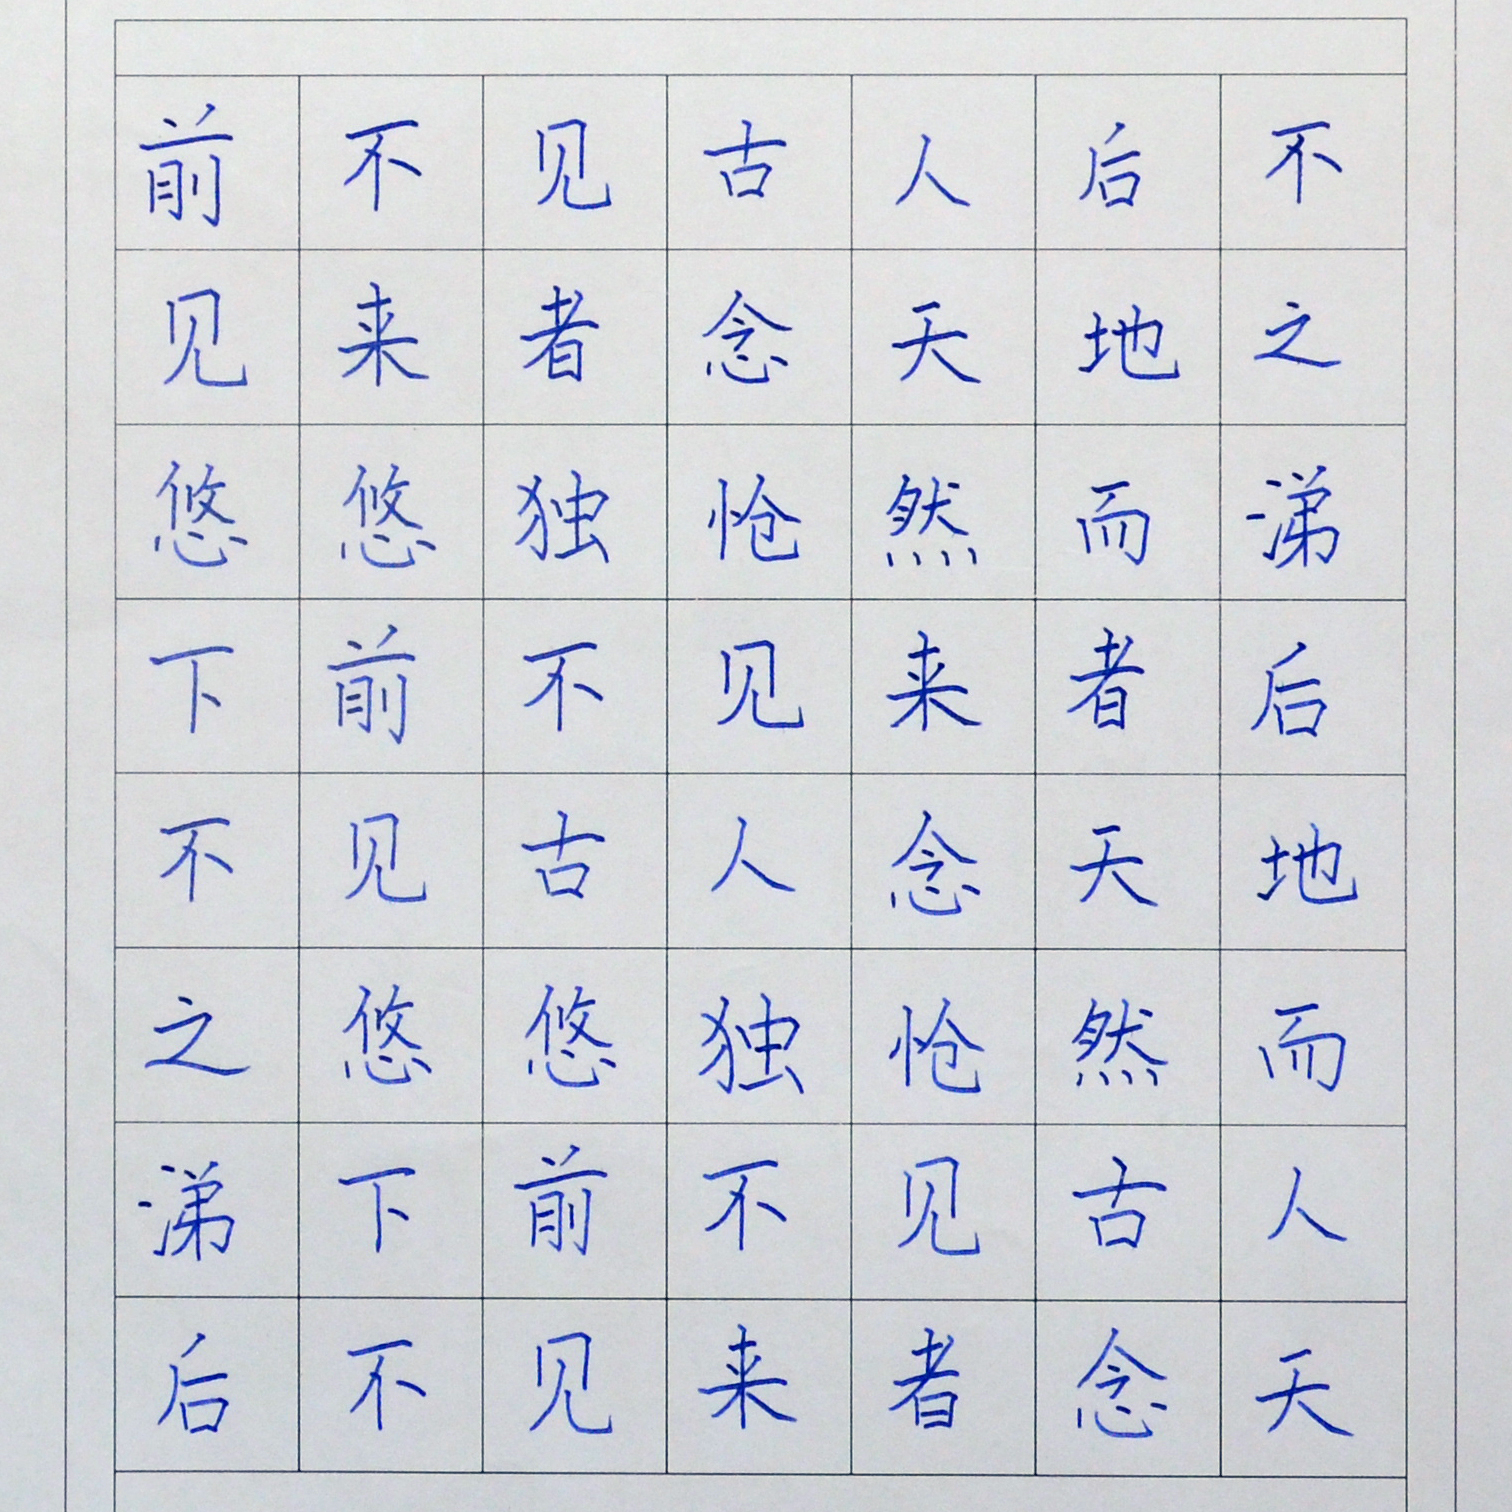 前不见古人后不
见来者念天地之
悠悠独怆然而涕
下前不见来者后
不见古人念天地
之悠悠独怆然而
涕下前不见古人
后不见来者念天